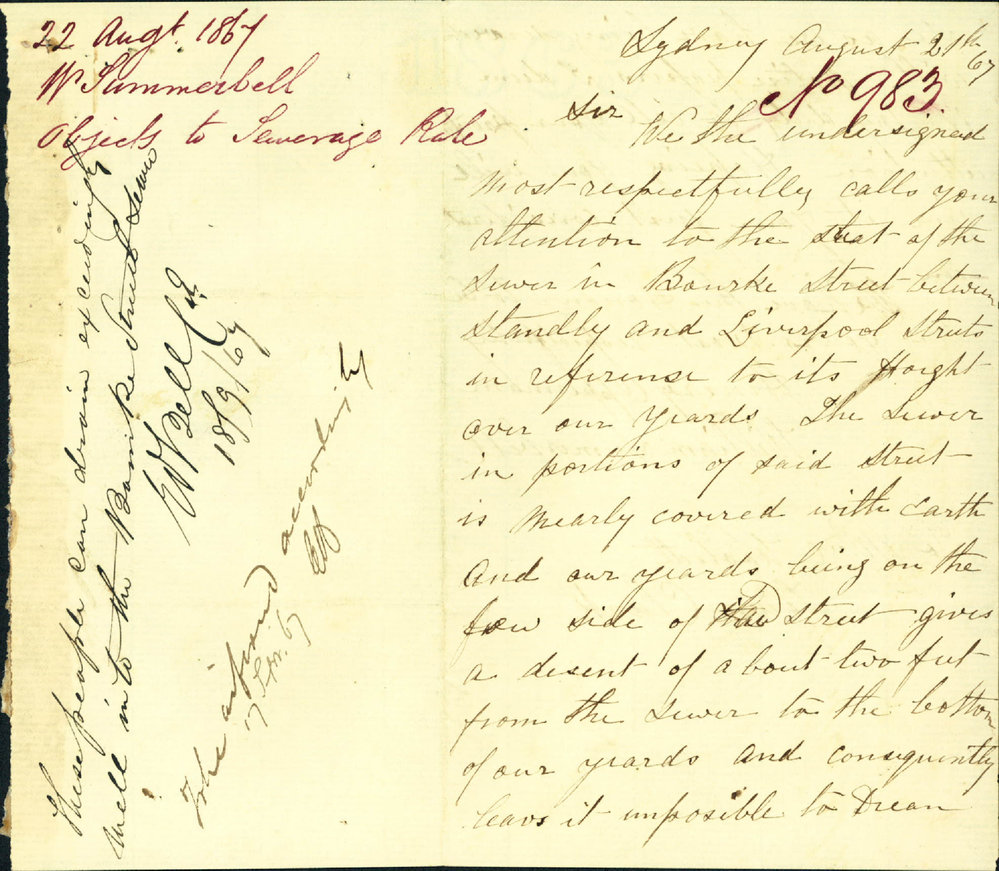 22 Augt. 1867
Wm Summerbell
Objects to Sewerage Rate
These people can drain exceedingly
well into the Bourke Street Sewer
W Bell CS
18/9/67
Inform according
Sydney August 21th
67
No 983.
Sir
We the undersigned
most respectfully calls your
attention to the stat of the
Sewer in Bourke Street between
Standly and Liverpool Streets
in referense to its Hoight
over our yeards The Sewer
in portions of said Street
is nearly covered with Earth
and our yeards being on the
low side of the Street gives
a desent of about two feet
from the Sewer to the bottom
of our yeards and consequently
leavs it imposible to Drean